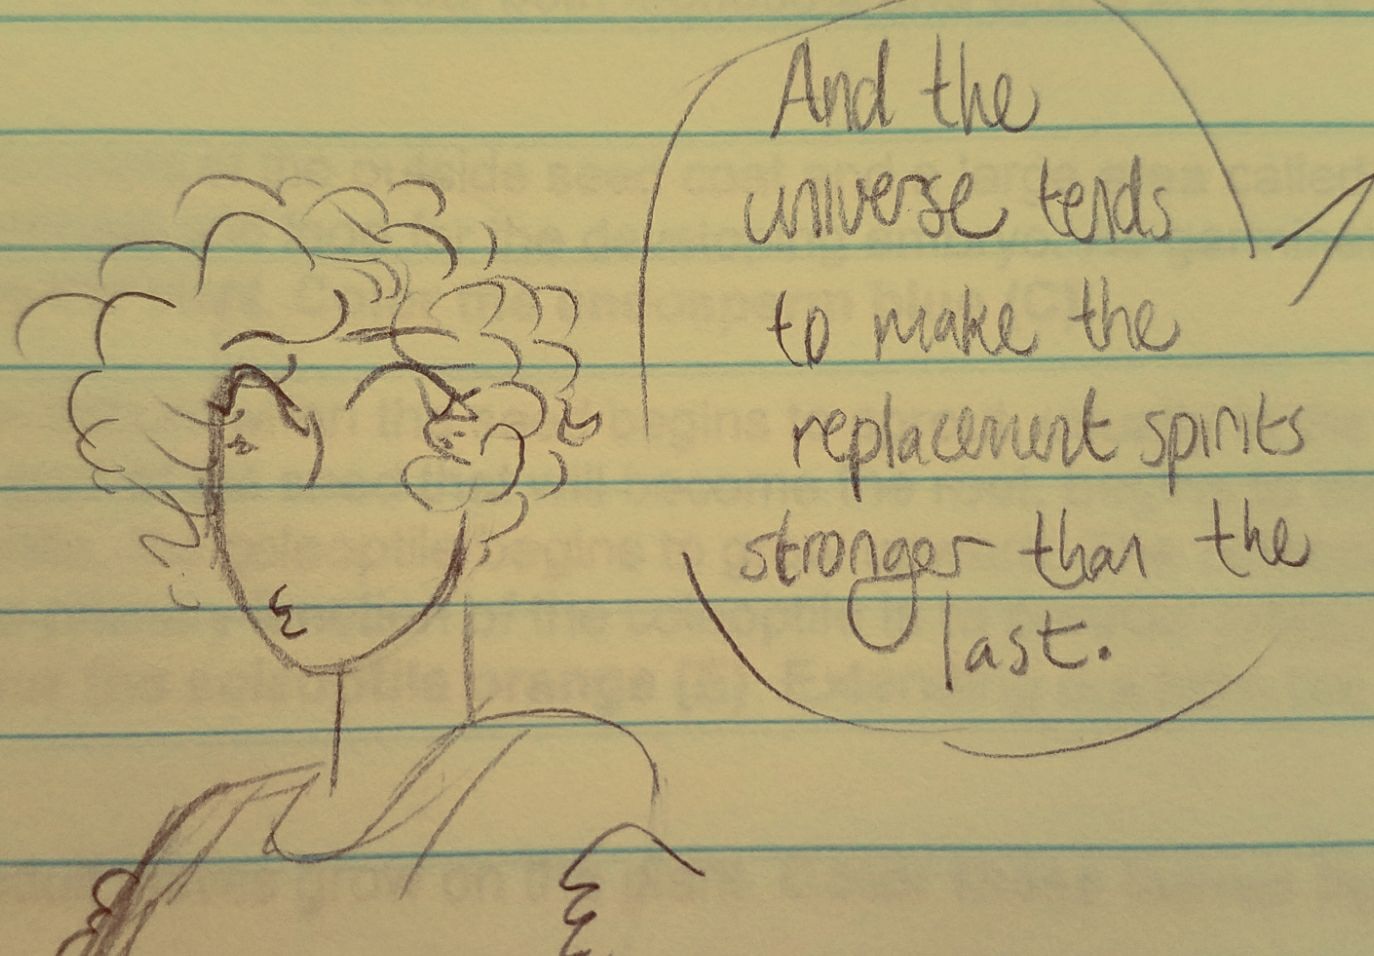 And the
universe tends
to make the
replacement spirits
stronger than the
last.